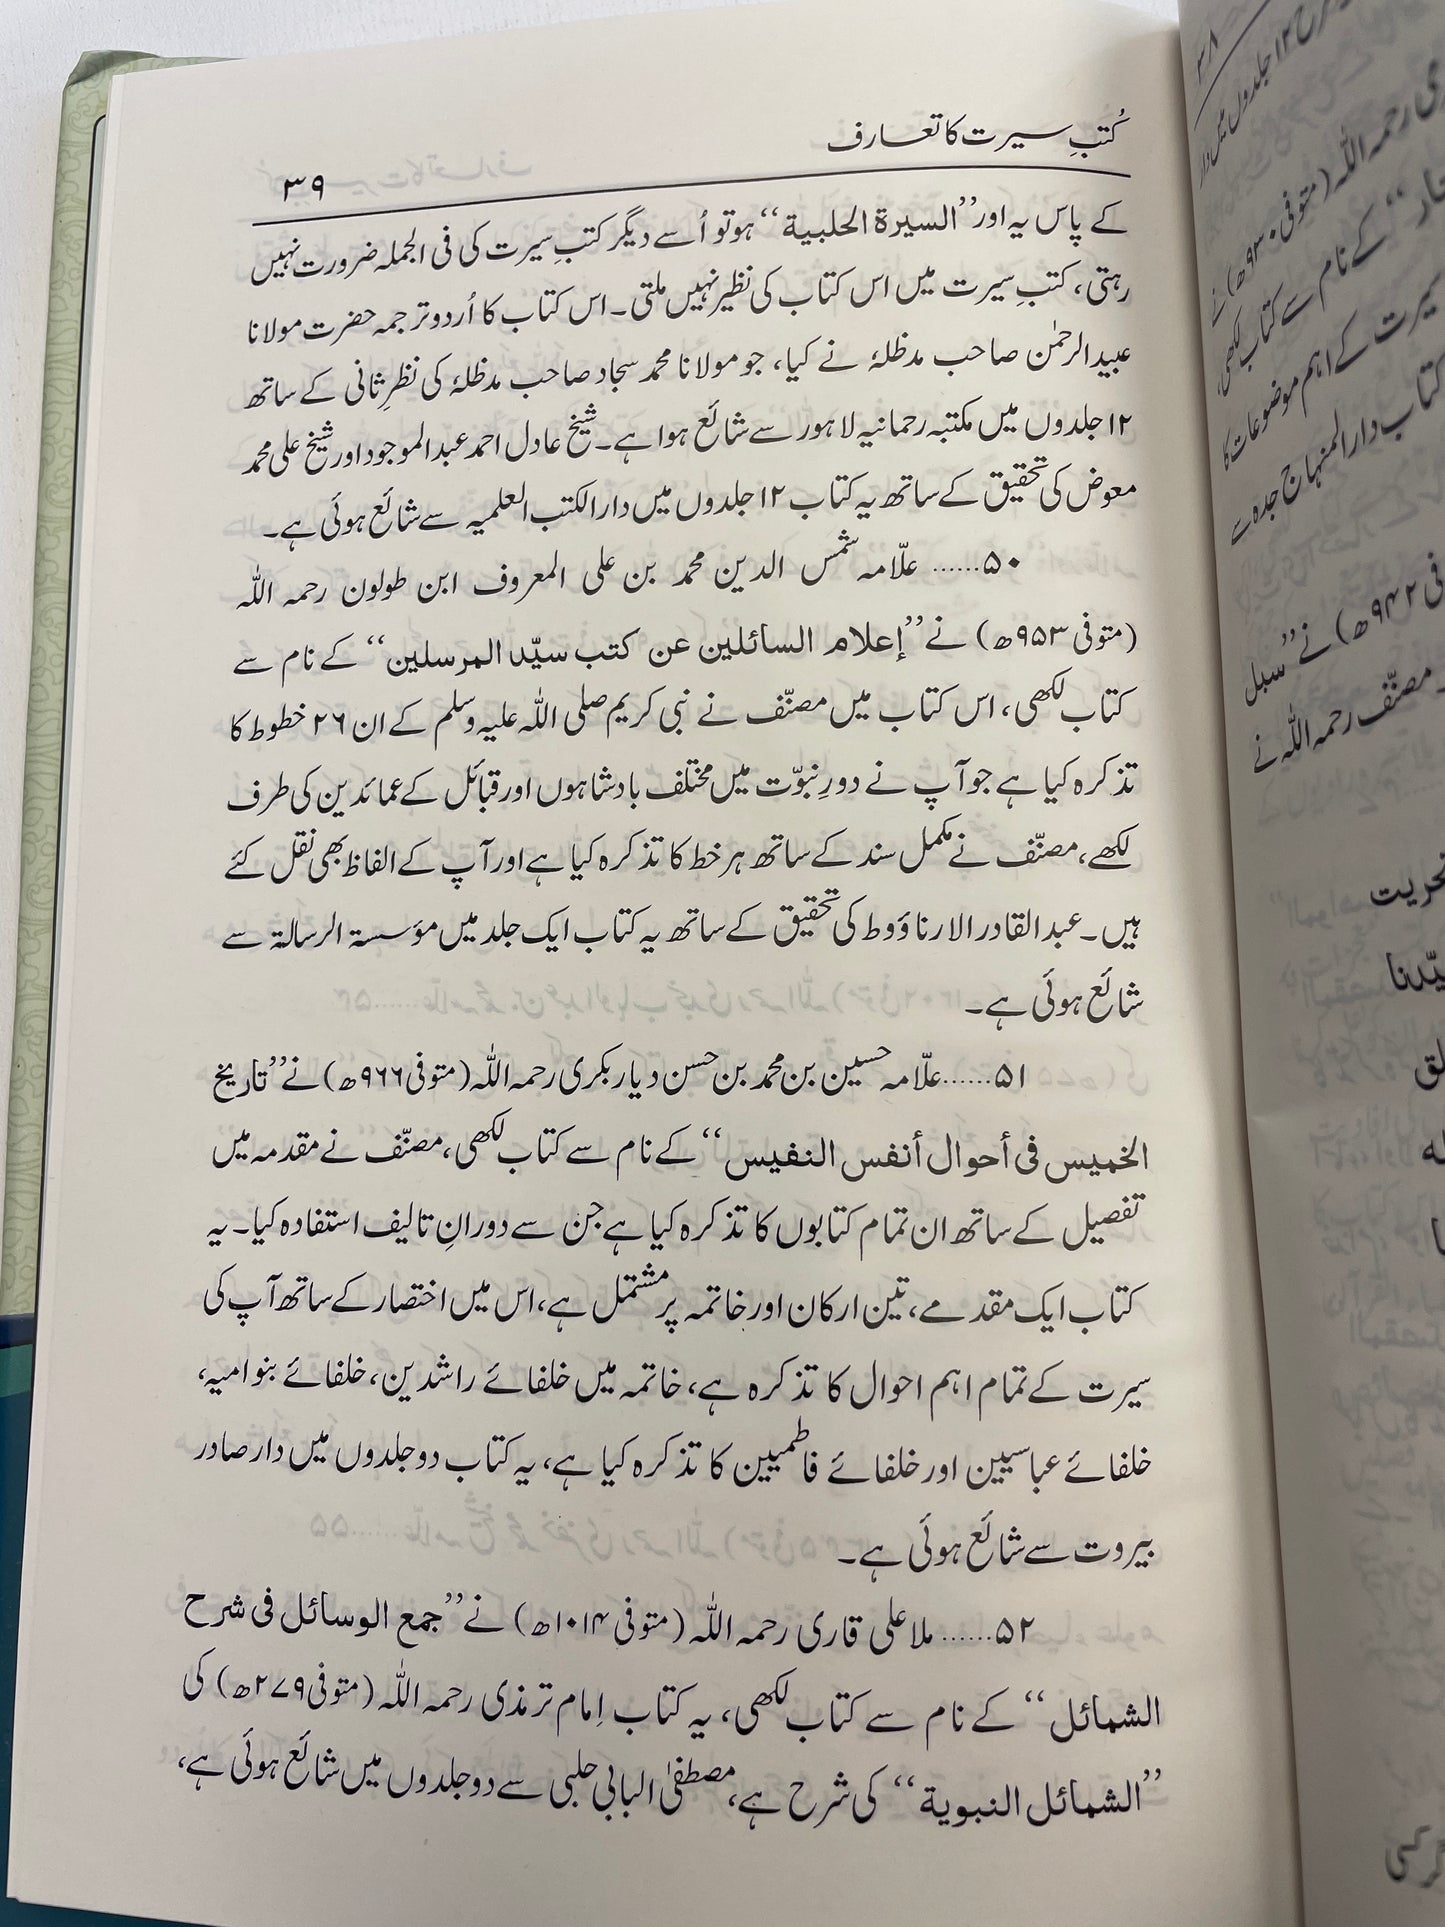 کُتبِ سیرت کا تعارف
۳۹
کے پاس یہ اور ’’السیرة الحلبیة‘‘ ہو تو اُسے دیگر کتبِ سیرت کی فی الجملہ ضرورت نہیں
رہتی، کتبِ سیرت میں اس کتاب کی نظیر نہیں ملتی۔ اس کتاب کا اُردو ترجمہ حضرت مولانا
عبیدالرحمٰن صاحب مدظلہٗ نے کیا، جو مولانا محمد سجاد صاحب مدظلہٗ کی نظرِ ثانی کے ساتھ
۱۲ جلدوں میں مکتبہ رحمانیہ لاہور سے شائع ہوا ہے۔ شیخ عادل احمد عبدالموجود اور شیخ علی محمد
معوض کی تحقیق کے ساتھ یہ کتاب ۱۲ جلدوں میں دارالکتب العلمیہ سے شائع ہوئی ہے۔
۵۰...... علّامہ شمس الدین محمد بن علی المعروف ابن طولون رحمہ اللّٰہ
(متوفی ۹۵۳ھ) نے ’’إعلام السائلین عن کتب سیّد المرسلین‘‘ کے نام سے
کتاب لکھی، اس کتاب میں مصنّف نے نبی کریم صلی اللّٰہ علیہ وسلم کے ان ۲۶ خطوط کا
تذکرہ کیا ہے جو آپ نے دورِ نبوّت میں مختلف بادشاہوں اور قبائل کے عمائدین کی طرف
لکھے، مصنّف نے مکمل سند کے ساتھ ہر خط کا تذکرہ کیا ہے اور آپ کے الفاظ بھی نقل کئے
ہیں۔ عبدالقادر الارناؤوط کی تحقیق کے ساتھ یہ کتاب ایک جلد میں مؤسسة الرسالة سے
شائع ہوئی ہے۔
۵۱...... علّامہ حسین بن محمد بن حسن دیار بکری رحمہ اللّٰہ (متوفی ۹۶۶ھ) نے ’’تاریخ
الخمیس فی أحوال أنفس النفیس‘‘ کے نام سے کتاب لکھی، مصنّف نے مقدمہ میں
تفصیل کے ساتھ ان تمام کتابوں کا تذکرہ کیا ہے جن سے دورانِ تالیف استفادہ کیا۔ یہ
کتاب ایک مقدمے، تین ارکان اور خاتمہ پر مشتمل ہے، اس میں اختصار کے ساتھ آپ کی
سیرت کے تمام اہم احوال کا تذکرہ ہے، خاتمہ میں خلفائے راشدین، خلفائے بنو امیہ،
خلفائے عباسیین اور خلفائے فاطمیین کا تذکرہ کیا ہے، یہ کتاب دو جلدوں میں دار صادر
بیروت سے شائع ہوئی ہے۔
۵۲...... ملا علی قاری رحمہ اللّٰہ (متوفی ۱۰۱۴ھ) نے ’’جمع الوسائل فی شرح
الشمائل‘‘ کے نام سے کتاب لکھی، یہ کتاب اِمام ترمذی رحمہ اللّٰہ (متوفی ۲۷۹ھ) کی
’’الشمائل النبویة‘‘ کی شرح ہے، مصطفیٰ البابی حلبی سے دو جلدوں میں شائع ہوئی ہے،
۳۸
جلدوں میں دار
ی رحمہ اللّٰہ (متوفی ۹۳۰ھ) نے
کے نام سے کتاب لکھی،
سیرت کے اہم موضوعات کا
کتاب دارالمنہاج جدہ سے
فی ۹۴۲ھ) نے ’’سبل
مصنّف رحمہ اللّٰہ نے